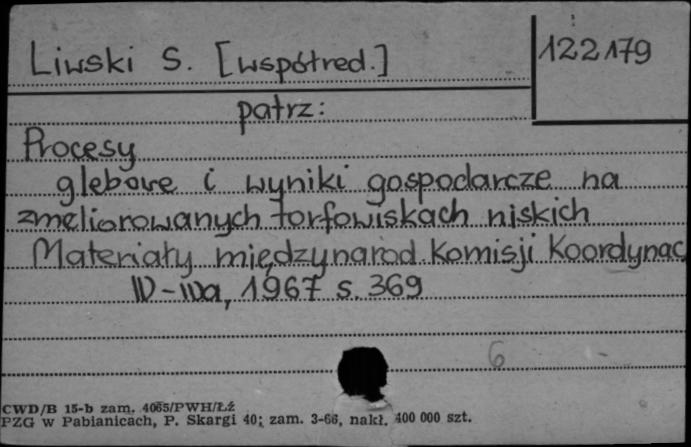 Liwski S. [współred.]
122179
patrz:
Procesy
glebowe i wyniki gospodarcze na
zmeliorowanych torfowiskach niskich
Materiały międzynarod. Komisji Koordynac
W-wa, 1967 s. 369
6
CWD/B 15-b zam. 4065/PWH/Łź
PZG w Pabianicach, P. Skargi 40; zam. 3-66, nakł. 400 000 szt.